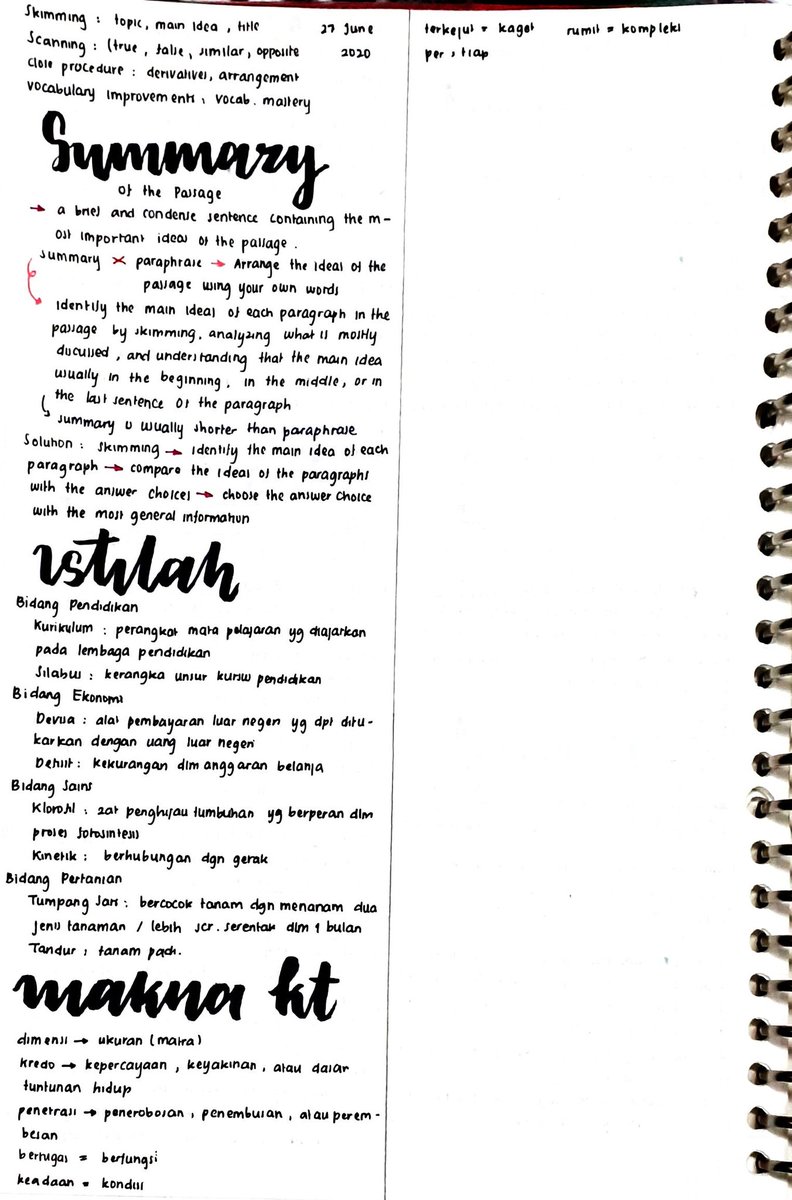 Skimming : topic, main idea, title
27 June
Scanning : (true, false, similar, opposite
2020
close procedure : derivatives, arrangement
vocabulary improvements : vocab. mastery
Summary
of the Passage
→ a brief and condense sentence containing the m-
ost important ideas of the passage.
summary × paraphrase → Arrange the ideas of the
passage using your own words
identify the main ideas of each paragraph in the
passage by skimming, analyzing what is mostly
discussed, and understanding that the main idea
usually in the beginning, in the middle, or in
the last sentence of the paragraph
summary is usually shorter than paraphrase
Solution : skimming → identify the main idea of each
paragraph → compare the ideas of the paragraphs
with the answer choices → choose the answer choice
with the most general information
istilah
Bidang Pendidikan
Kurikulum : perangkat mata pelajaran yg diajarkan
pada lembaga pendidikan
Silabus : kerangka unsur kursus pendidikan
Bidang Ekonomi
Devisa : alat pembayaran luar negeri yg dpt ditu-
karkan dengan uang luar negeri
Defisit : kekurangan dlm anggaran belanja
Bidang Sains
Klorofil : zat penghijau tumbuhan yg berperan dlm
proses fotosintesis
Kinetik : berhubungan dgn gerak
Bidang Pertanian
Tumpang Sari : bercocok tanam dgn menanam dua
jenis tanaman / lebih scr. serentak dlm 1 bulan
Tandur : tanam padi.
makna kt
dimensi → ukuran (matra)
kredo → kepercayaan, keyakinan, atau dasar
tuntunan hidup
penetrasi → penerobosan, penembusan, atau perem-
besan
bertugas = berfungsi
keadaan = kondisi
terkejut = kaget rumit = kompleks
per = tiap